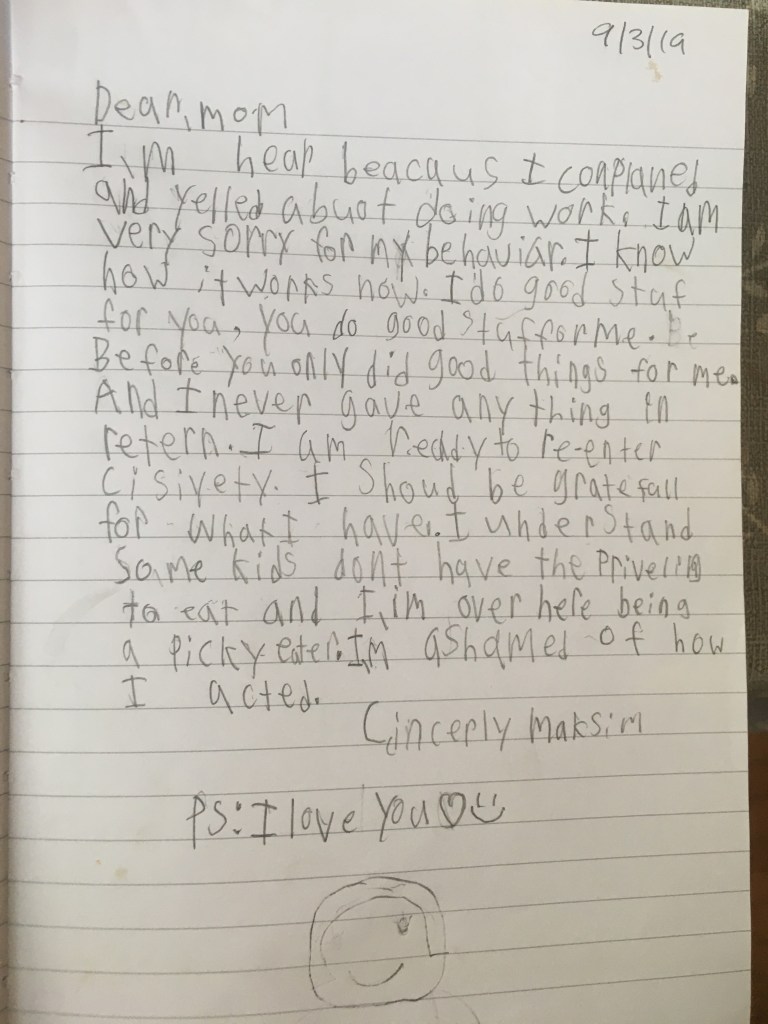 9/3/19
Dear, mom
I,m hear beacaus I complaned
and yelled abuot doing work. I am
very sorry for my behaviar. I know
how it works now. I do good stuf
for you, you do good stuf for me. Be
Before you only did good things for me.
And I never gave any thing in
retern. I am ready to re-enter
cisivety. I shoud be grate full
for what I have. I understand
some kids dont have the
to eat and I,im over here being
a picky eater. I,m ashamed of how
I acted.
Cincerly Maksim
PS: I love you♡